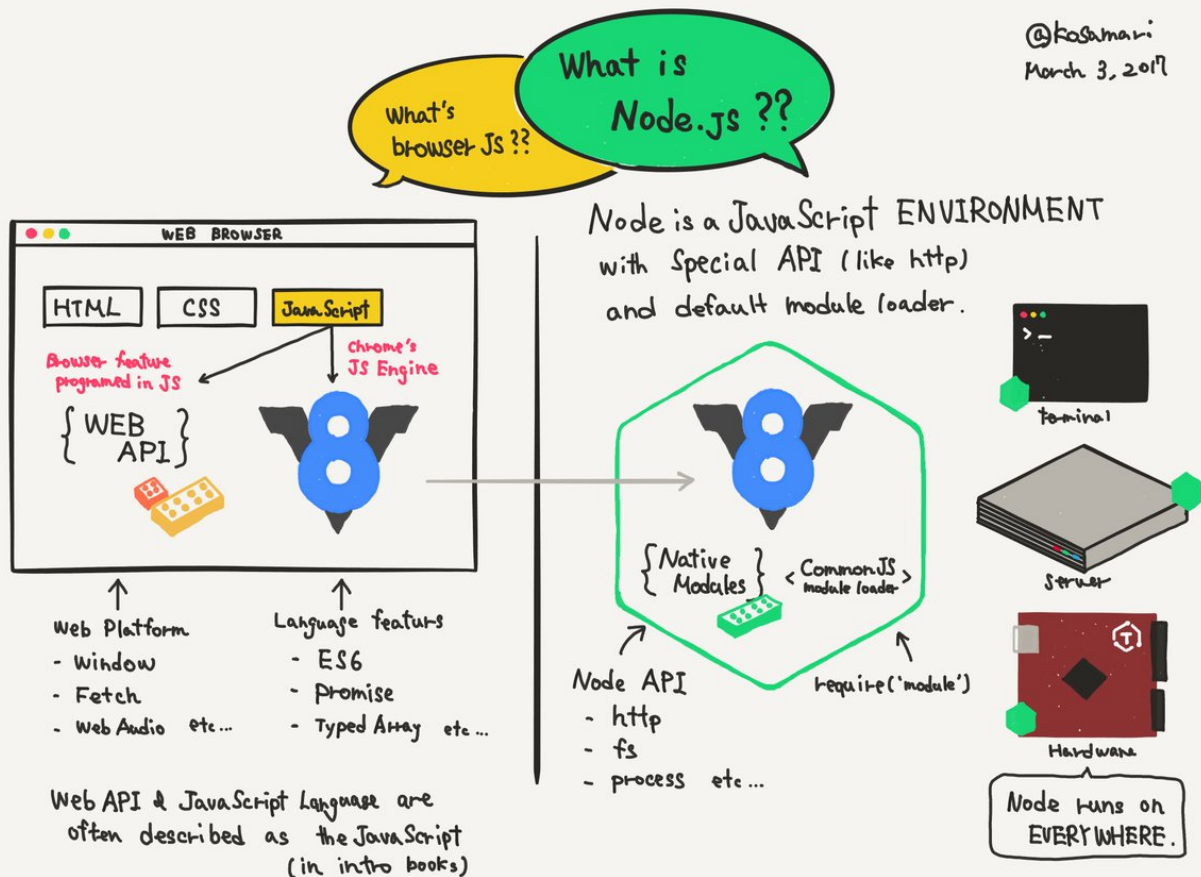 @kosamari
March 3, 2017
What's
browser Js ??
What is
Node.js ??
WEB BROWSER
HTML
CSS
JavaScript
Browser feature
programed in JS
Chrome's
JS Engine
{ WEB
API }
8
Web Platform
- Window
- Fetch
- Web Audio etc...
Language featurs
- ES6
- Promise
- Typed Array etc...
Web API & JavaScript Language are
often described as the JavaScript
(in intro books)
Node is a JavaScript ENVIRONMENT
with Special API (like http)
and default module loader.
8
{ Native
Modules }
< CommonJS
module loader >
Node API
- http
- fs
- process etc...
require('module')
>_
terminal
server
T
Hardware
Node runs on
EVERYWHERE.